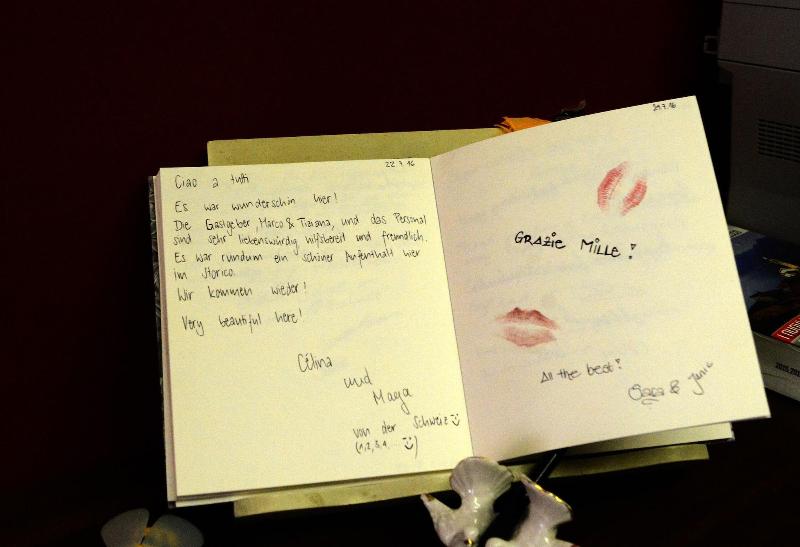 22.7.16
Ciao a tutti
Es war wunderschin hier!
Die Gastgeber, Marco & Tiziana, und das Personal
sind sehr liebenswürdig hilfsbereit und freundlich.
Es war rundum ein schöner Aufenthalt hier
im Storico.
Wir kommen wieder!
Very beautiful here!
Célina
und
Maya
von der Schweiz
(1,2,3,4...
29.7.16
GRAZIE MILLE!
All the best!
Sara &